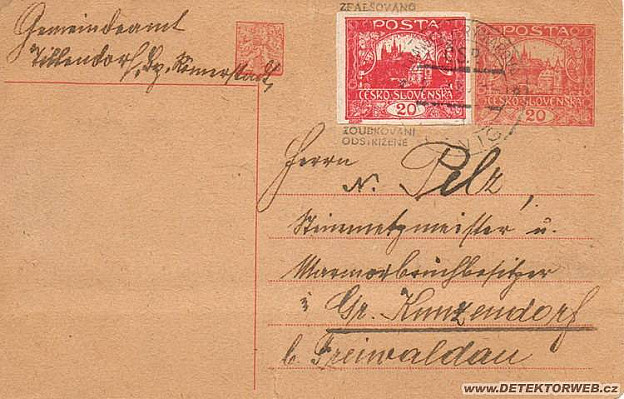 Gemeindeamt
Tillendorf, Bz. Römerstadt,
ZFALŠOVÁNO
POSTA
ČESKO-SLOVENSKÁ
20
ZOUBKOVÁNÍ
ODSTŘIŽENÉ
POSTA
ČESKO-SLOVENSKÁ
20
Herrn
N. Pelz,
Steinmetzmeister u.
Marmorbruchbesitzer
Gr. Kunzendorf
b. Freiwaldau
www.DETEKTORWEB.cz